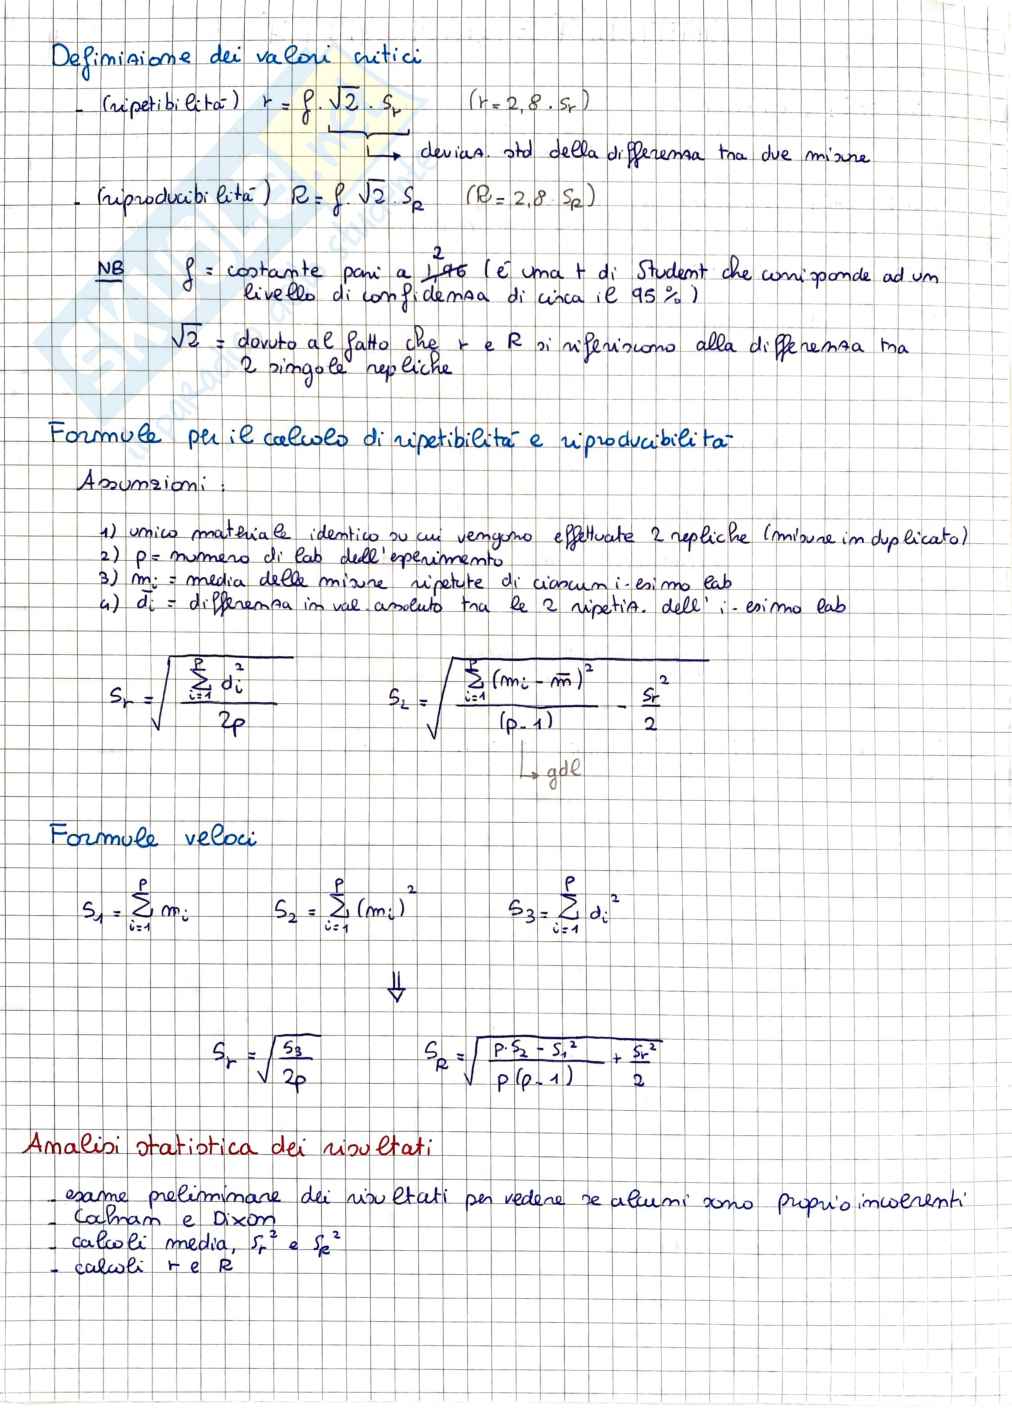 Definizione dei valori critici
- (ripetibilità) r = f · √2 · Sr (r = 2,8 · Sr)
→ deviaz. std della differenza tra due misure
- (riproducibilità) R = f · √2 · SR (R = 2,8 · SR)
NB f = costante pari a ~~1,96~~ 2 (è una t di Student che corrisponde ad un
livello di confidenza di circa il 95%)
√2 = dovuto al fatto che r e R si riferiscono alla differenza tra
2 singole repliche
Formule per il calcolo di ripetibilità e riproducibilità
Assunzioni:
1) unico materiale identico su cui vengono effettuate 2 repliche (misure in duplicato)
2) p = numero di lab dell'esperimento
3) mi = media delle misure ripetute di ciascun i-esimo lab
4) di = differenza in val. assoluto tra le 2 ripetiz. dell' i-esimo lab
Sr = √(Σ_{i=1}^{p} di² / 2p) SL = √(Σ_{i=1}^{p} (mi - m̄)² / (p-1) - Sr²/2)
↳ gdl
Formule veloci
S1 = Σ_{i=1}^{p} mi S2 = Σ_{i=1}^{p} (mi)² S3 = Σ_{i=1}^{p} di²
⇓
Sr = √(S3 / 2p) SR = √((p·S2 - S1²) / p(p-1) + Sr²/2)
Analisi statistica dei risultati
- esame preliminare dei risultati per vedere se alcuni sono proprio incoerenti
- Cochran e Dixon
- calcoli media, Sr² e SR²
- calcoli r e R